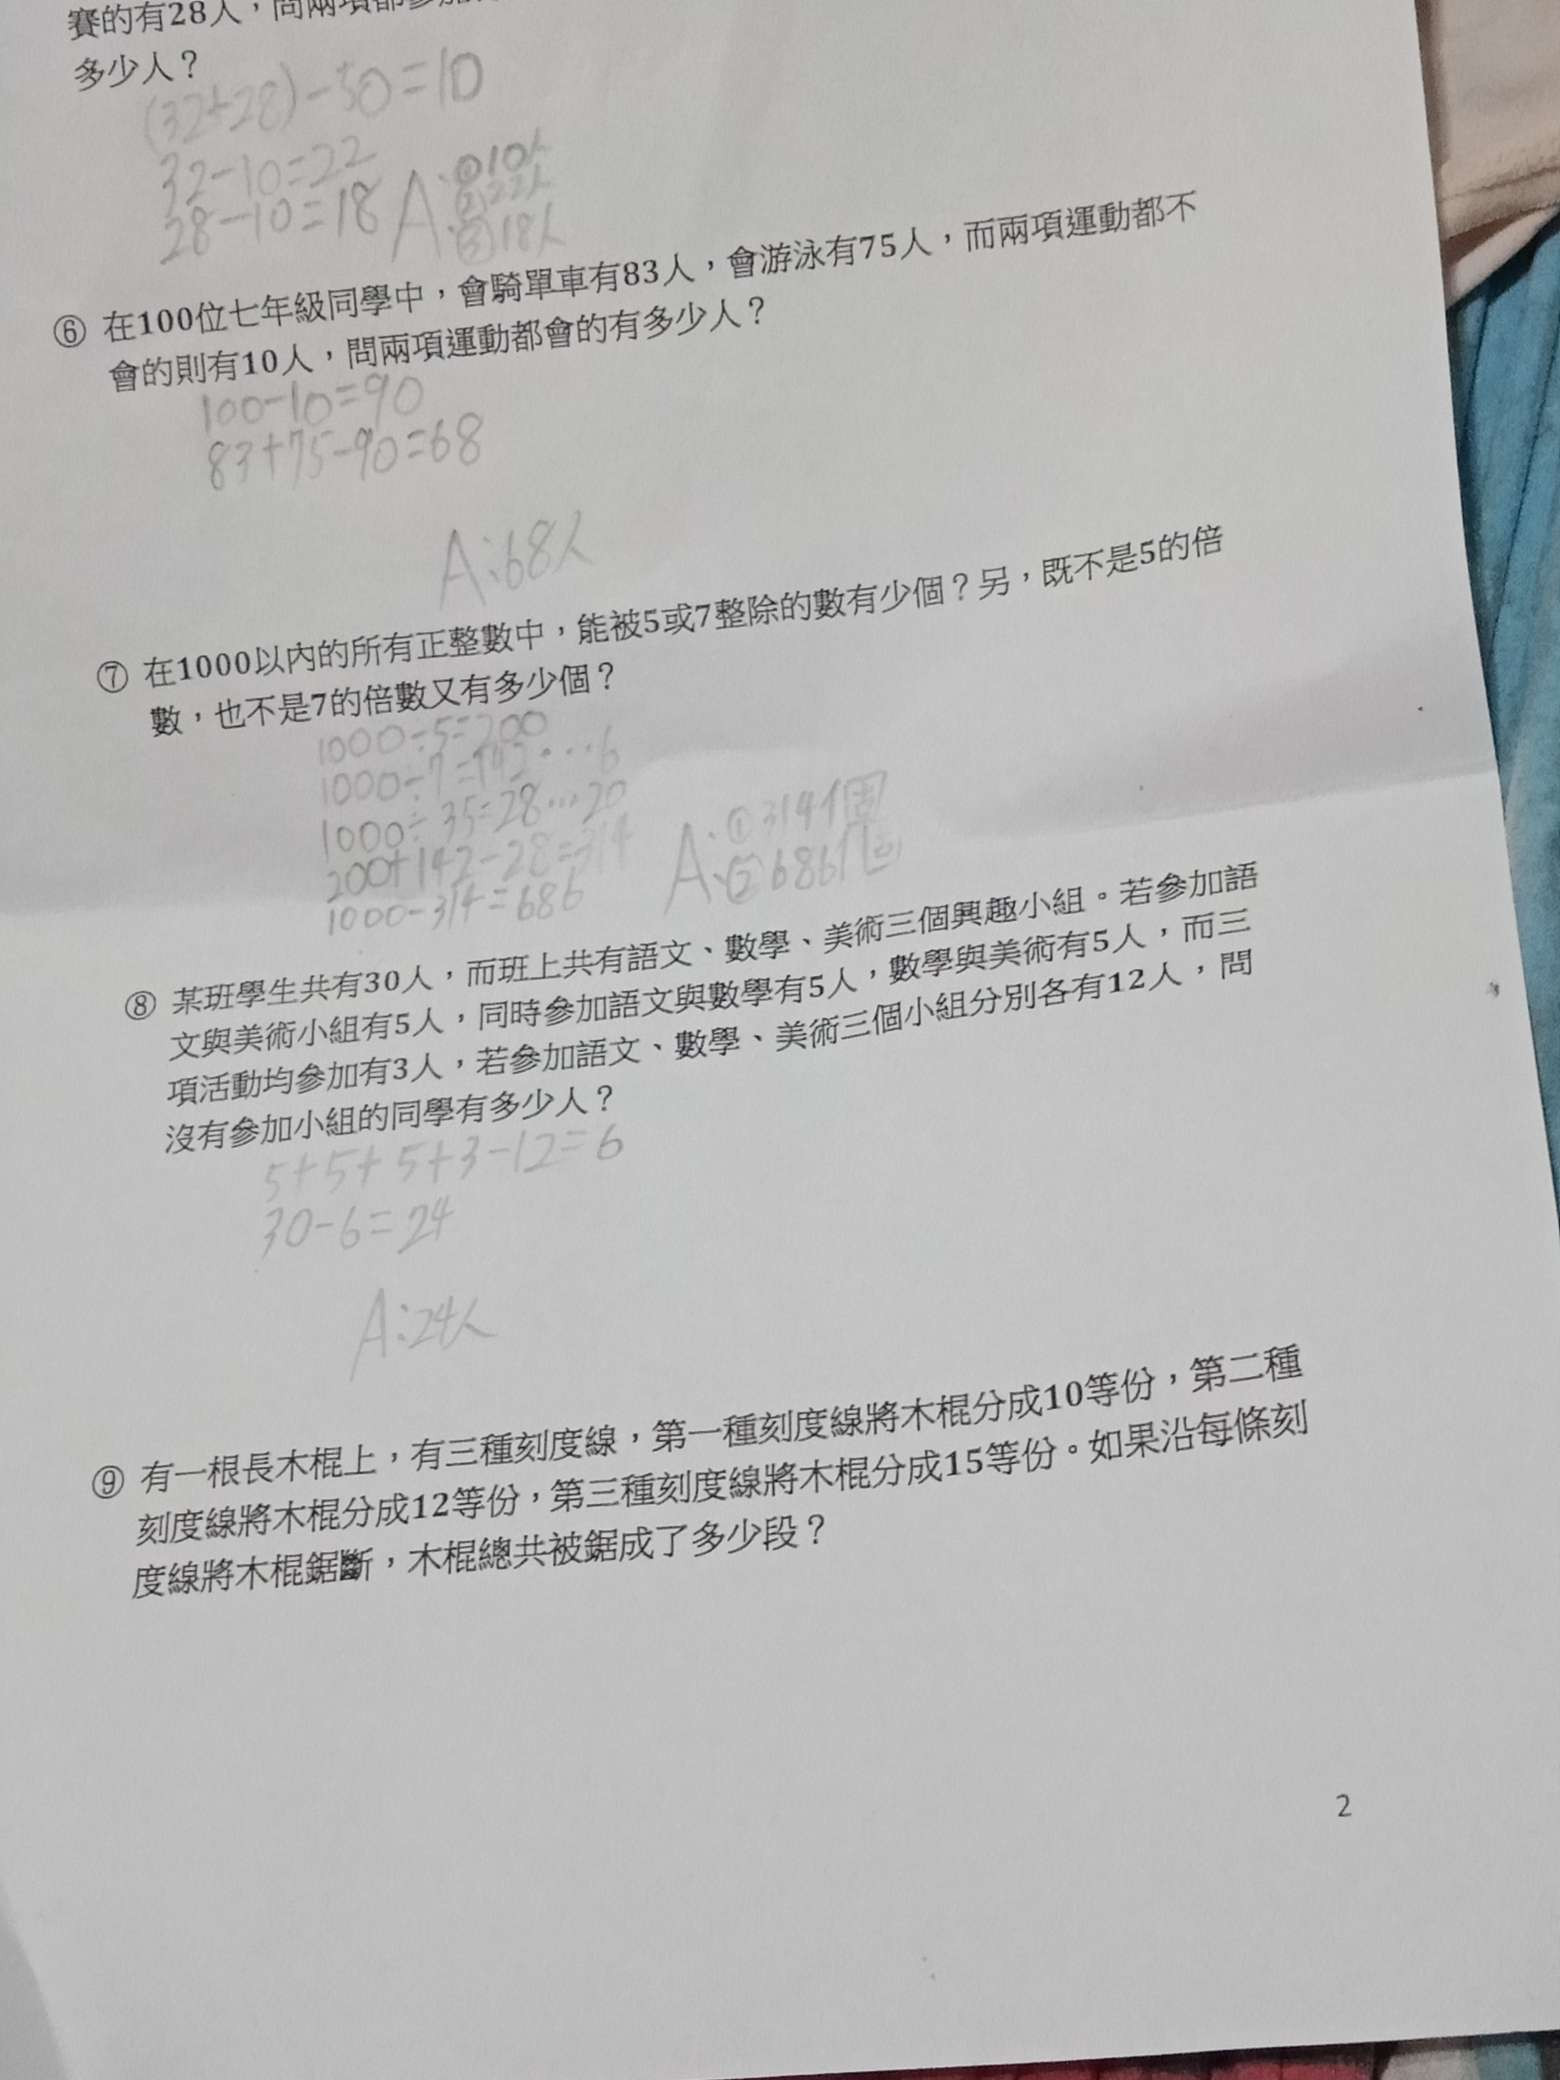 賽的有28人，問兩項都參加
多少人？
(32+28)-50=10
32-10=22
28-10=18
A:①10人
②22人
③18人
⑥ 在100位七年級同學中，會騎單車有83人，會游泳有75人，而兩項運動都不
會的則有10人，問兩項運動都會的有多少人？
100-10=90
83+75-90=68
A:68人
⑦ 在1000以內的所有正整數中，能被5或7整除的數有少個？另，既不是5的倍
數，也不是7的倍數又有多少個？
1000÷5=200
1000÷7=142…6
1000÷35=28…20
200+142-28=314
1000-314=686
A:①314個
②686個
⑧ 某班學生共有30人，而班上共有語文、數學、美術三個興趣小組。若參加語
文與美術小組有5人，同時參加語文與數學有5人，數學與美術有5人，而三
項活動均參加有3人，若參加語文、數學、美術三個小組分別各有12人，問
沒有參加小組的同學有多少人？
5+5+5+3-12=6
30-6=24
A:24人
⑨ 有一根長木棍上，有三種刻度線，第一種刻度線將木棍分成10等份，第二種
刻度線將木棍分成12等份，第三種刻度線將木棍分成15等份。如果沿每條刻
度線將木棍鋸斷，木棍總共被鋸成了多少段？
2